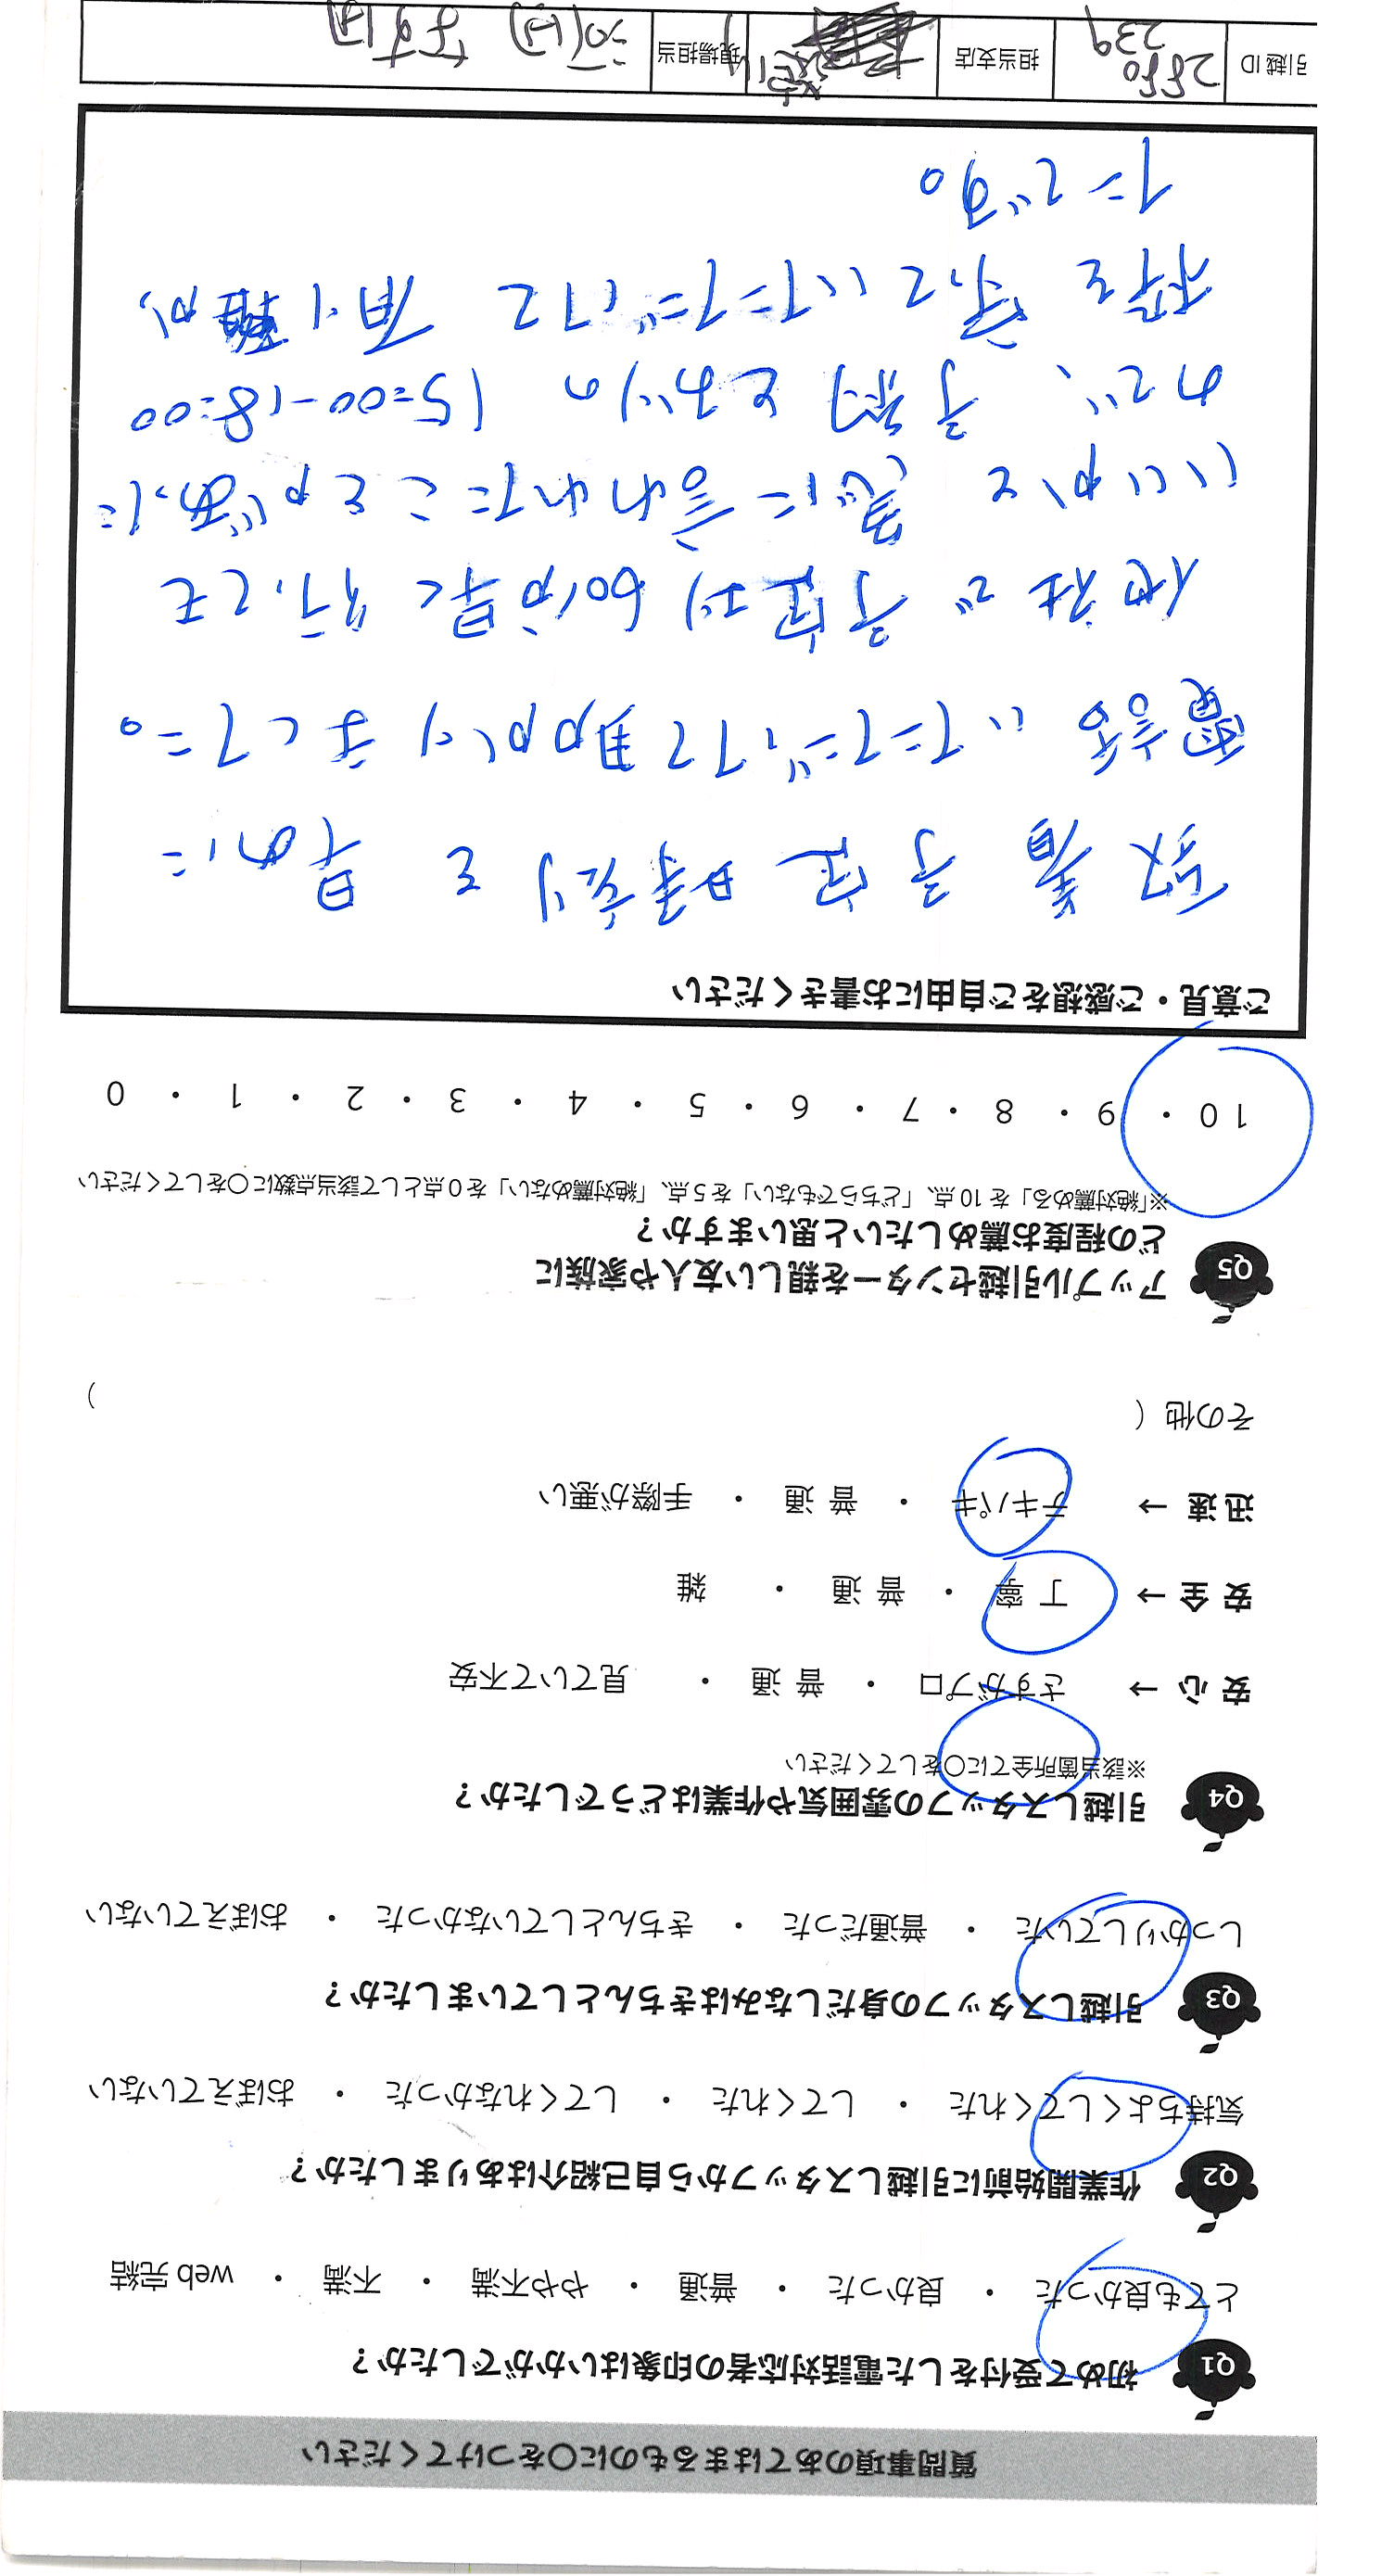 質問事項のあてはまるものに○をつけてください
Q1 初めて受付をした電話対応者の印象はいかがでしたか？
とても良かった ・ 良かった ・ 普通 ・ やや不満 ・ 不満 ・ web完結
Q2 作業開始前に引越しスタッフから自己紹介はありましたか？
気持ちよくしてくれた ・ してくれた ・ してくれなかった ・ おぼえていない
Q3 引越しスタッフの身だしなみはきちんとしていましたか？
しっかりしていた ・ 普通だった ・ きちんとしていなかった ・ おぼえていない
Q4 引越しスタッフの雰囲気や作業はどうでしたか？
※該当箇所全てに○をしてください
安 心 → さすがプロ ・ 普 通 ・ 見ていて不安
安 全 → 丁 寧 ・ 普 通 ・ 雑
迅 速 → テキパキ ・ 普 通 ・ 手際が悪い
その他（ ）
Q5 アップル引越センターを親しい友人や家族に
どの程度お薦めしたいと思いますか？
※「絶対薦める」を10点、「どちらでもない」を5点、「絶対薦めない」を0点として該当点数に○をしてください
10 ・ 9 ・ 8 ・ 7 ・ 6 ・ 5 ・ 4 ・ 3 ・ 2 ・ 1 ・ 0
ご意見・ご感想をご自由にお書きください
到着予定時刻を 早めに
電話いただけて助かりました。
他社で予定の60分早く行っても
いいかと急に言われたことがあった
ので、予約どおりの 15:00-18:00
枠を守っていただけて有り難か
ったです。
引越ID 2880
239
担当支店
現場担当 河内 ます田